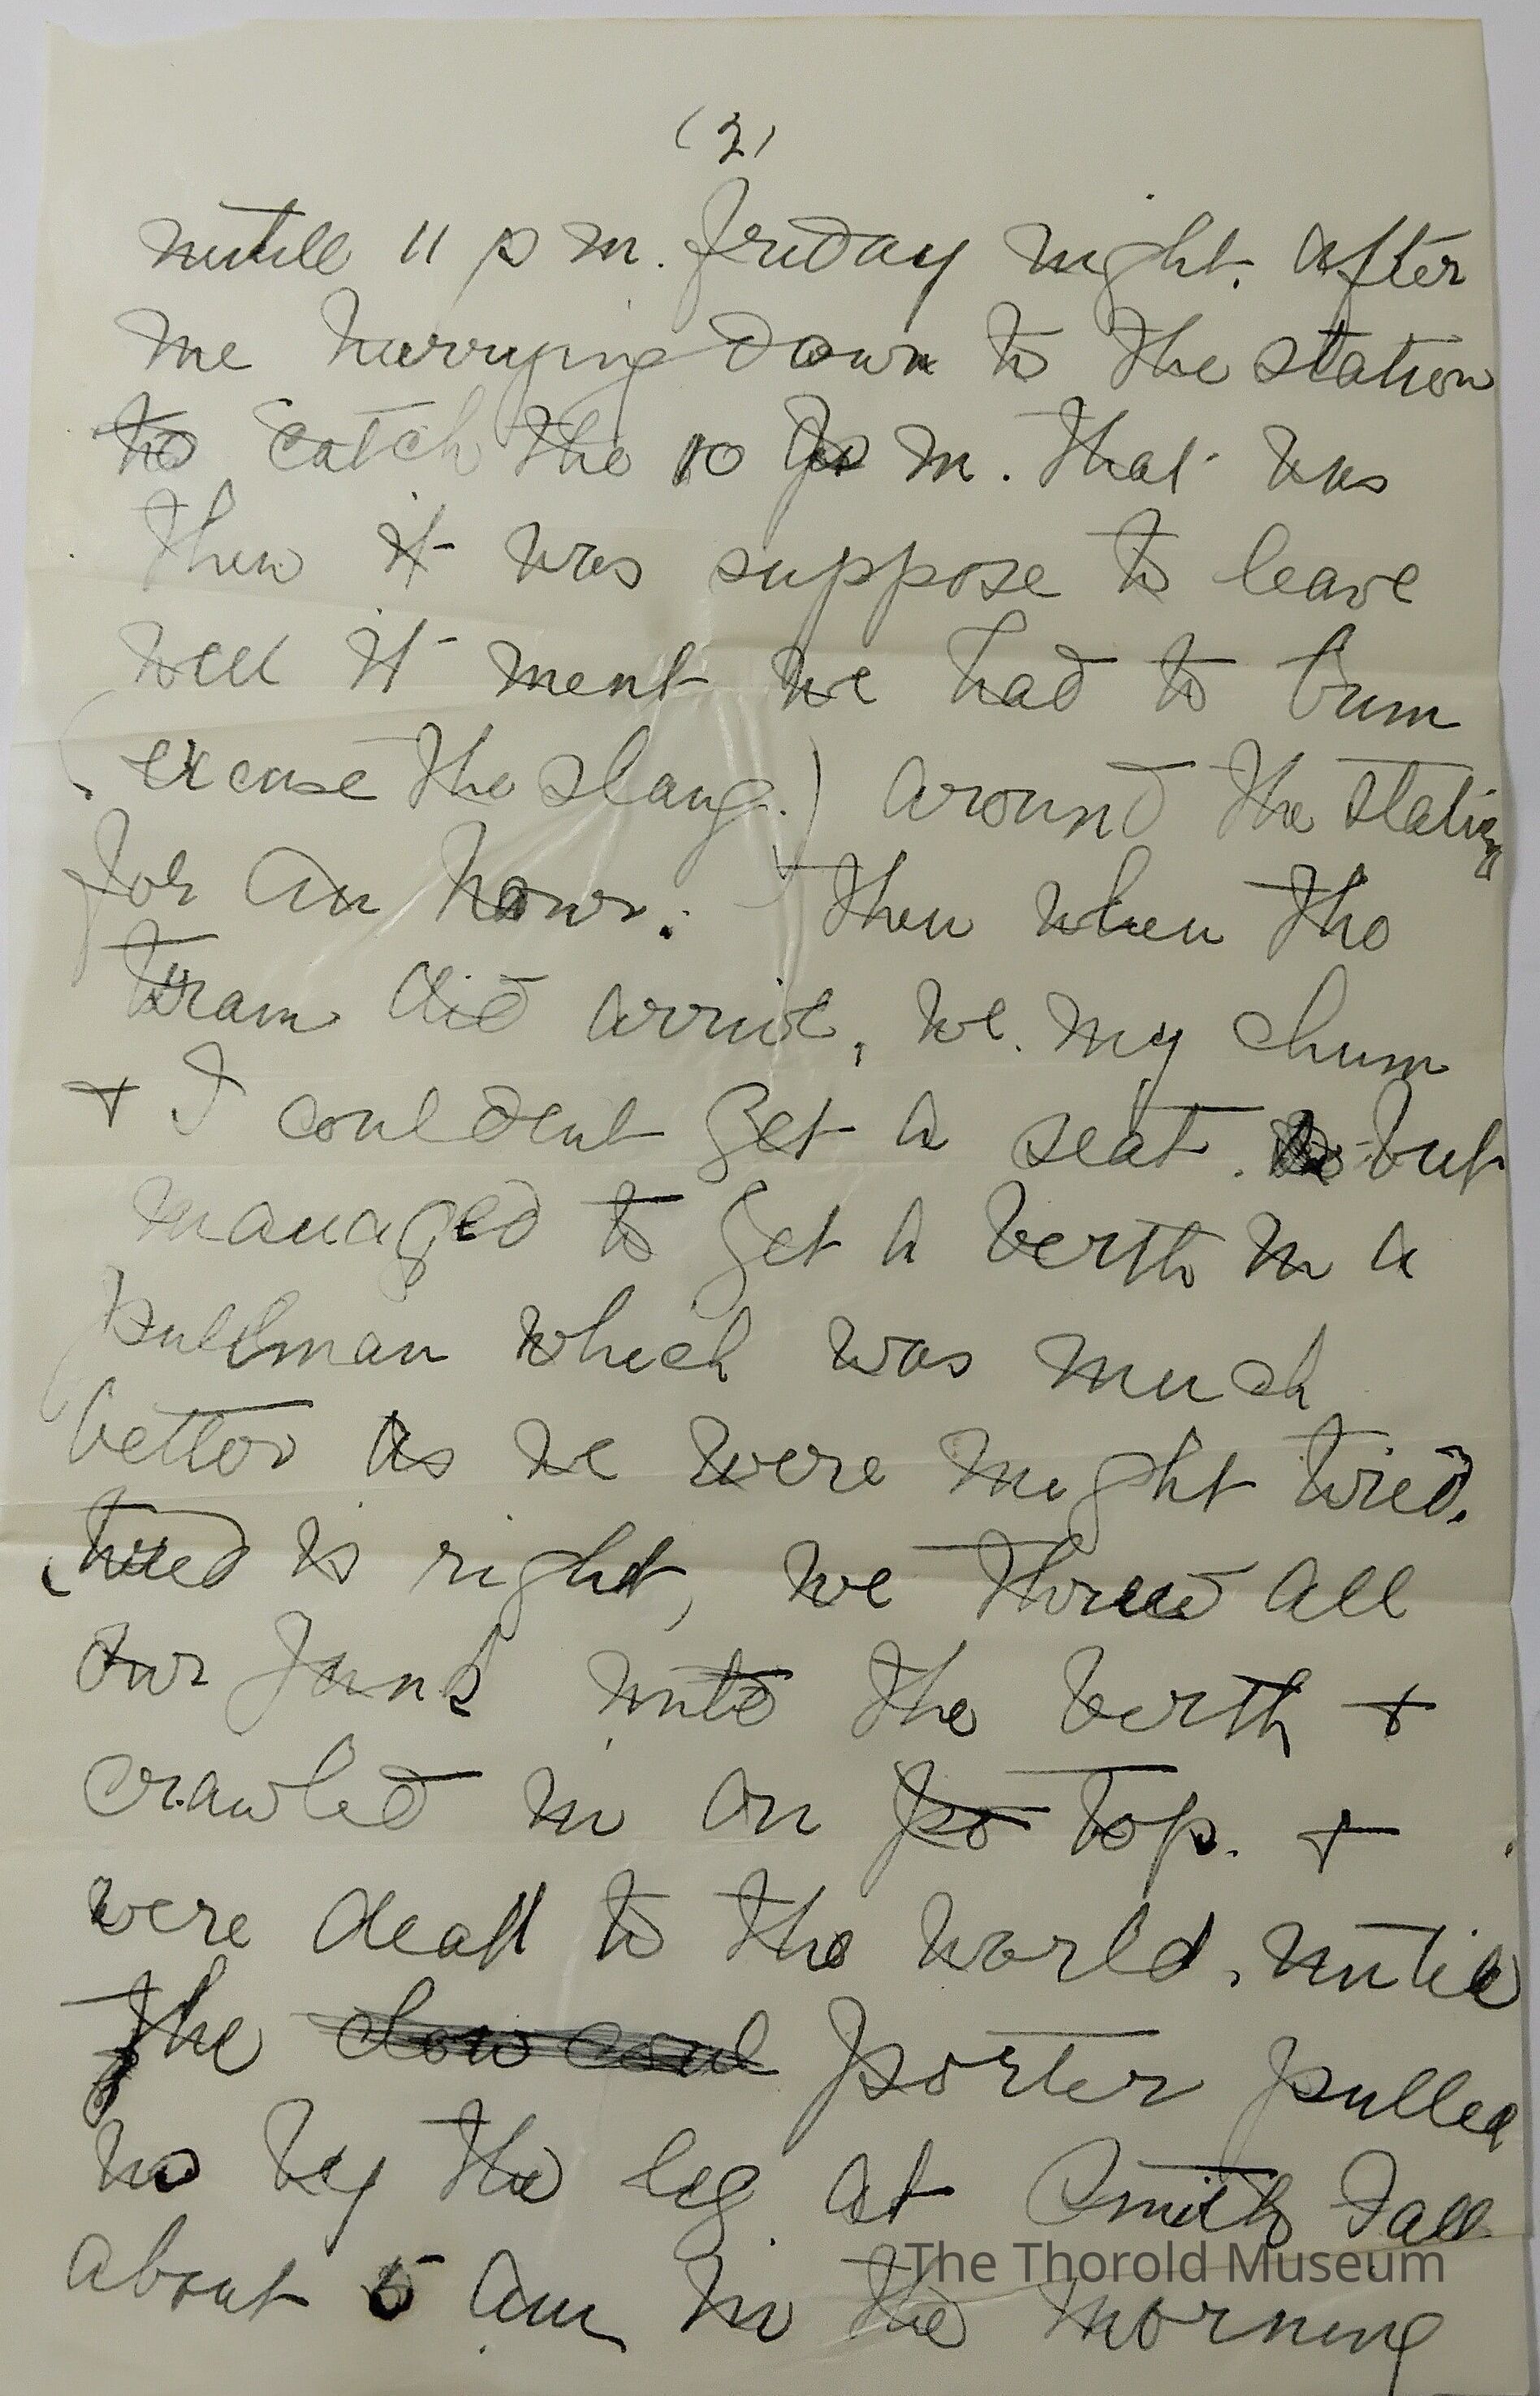 (2)
untill 11 p m. friday night. After
me hurrying down to the station
to catch the 10 p m. that was
then it was suppose to leave
well it ment we had to bum
(excuse the slang.) around the station
for an hour. Then when the
train did arrive, we. my chum
+ I couldent get a seat. but
managed to get a berth in a
pullman which was much
better as we were might tired.
tired is right, we threw all
our junk into the berth +
crawled in on to top. +
were dead to the world. untill
the porter pulled
us by the leg at Smith Fall
about 5 am in the morning
The Thorold Museum